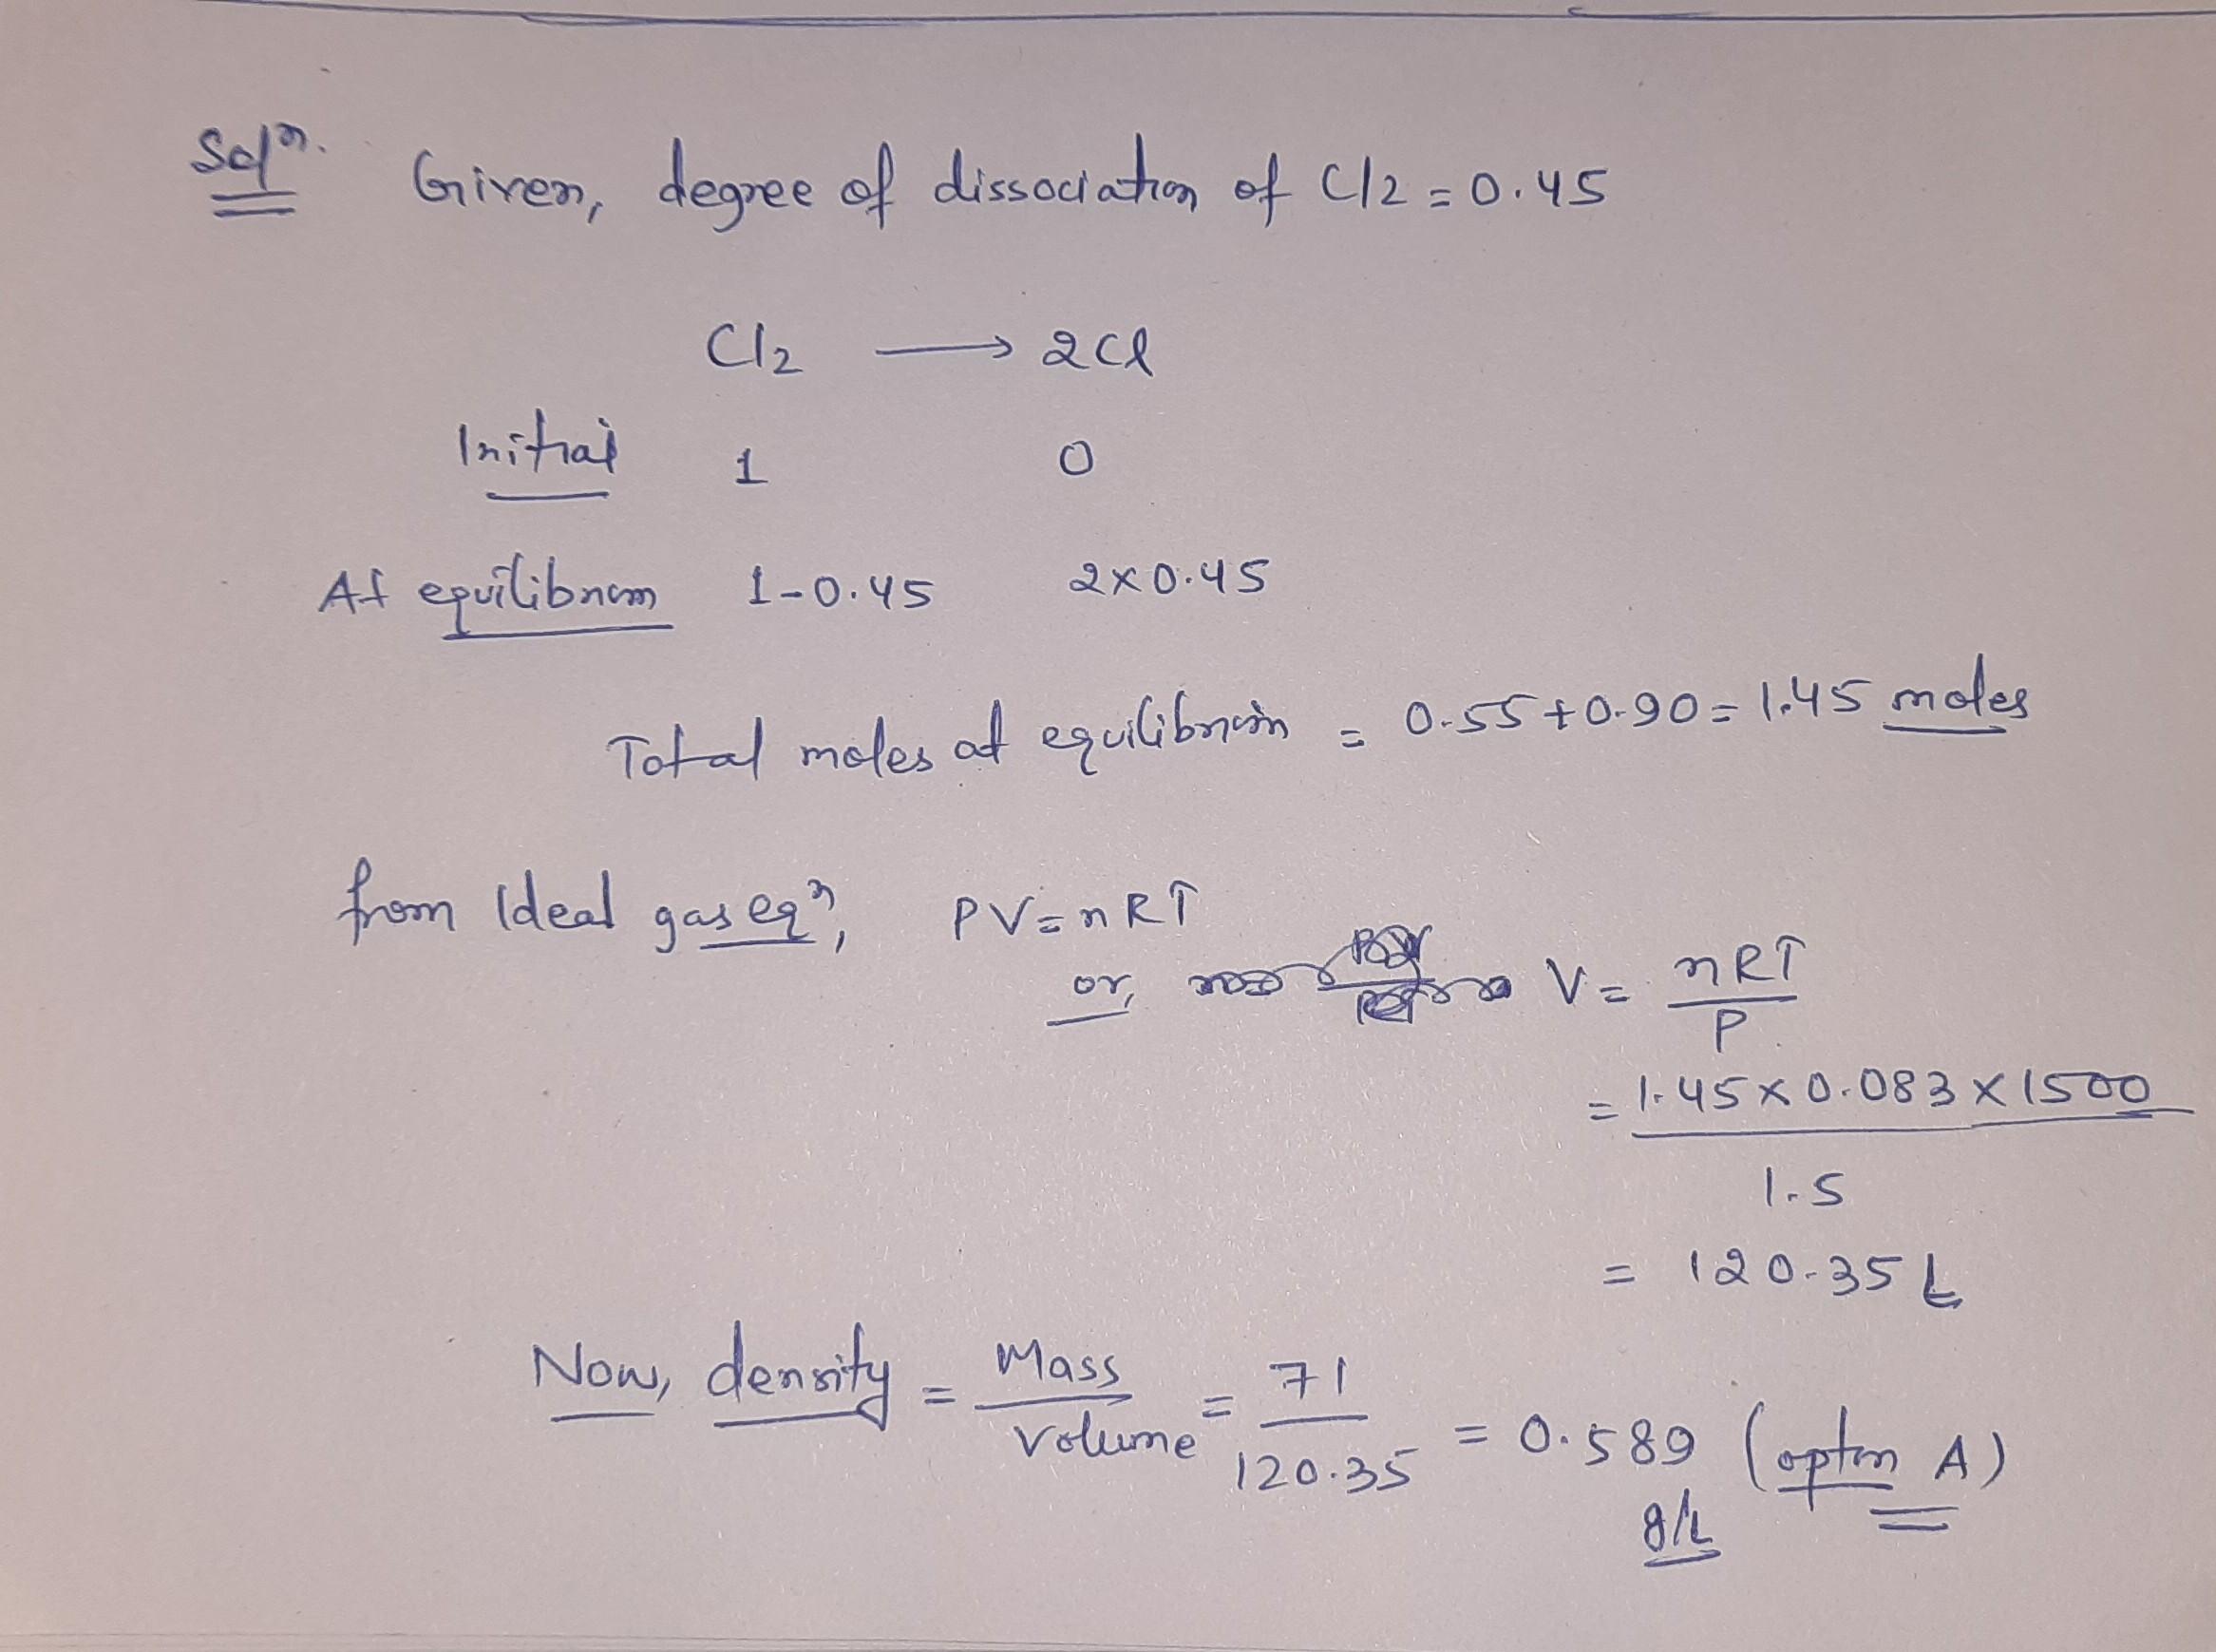 Solⁿ. Given, degree of dissociation of Cl2 = 0.45
Cl₂ → 2Cl
Initial 1 0
At equilibrium 1-0.45 2×0.45
Total moles at equilibrium = 0.55+0.90 = 1.45 moles
from Ideal gas eqⁿ, PV=nRT
or, V = nRT/P
= 1.45×0.083×1500
1.5
= 120.35 L
Now, density = Mass/Volume = 71/120.35 = 0.589 (option A)
g/L